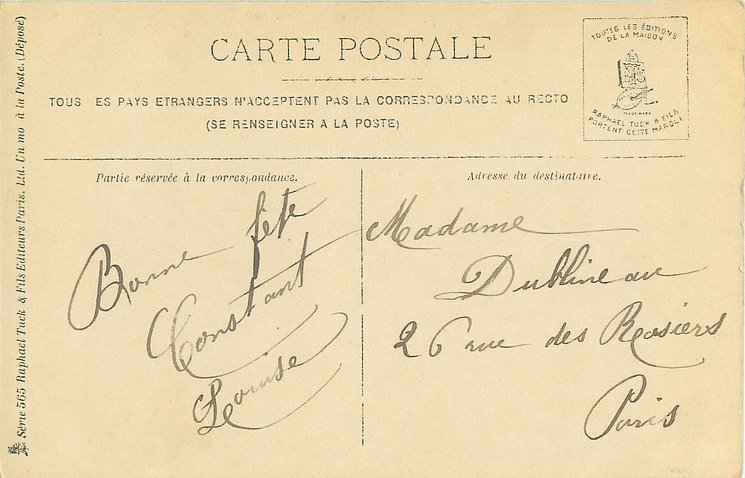 CARTE POSTALE
TOUS ES PAYS ETRANGERS N'ACCEPTENT PAS LA CORRESPONDANCE AU RECTO
(SE RENSEIGNER A LA POSTE)
TOUTES LES ÉDITIONS
DE LA MAISON
TRADE MARK
RAPHAEL TUCK & FILS
PORTENT CETTE MARQUE
Partie réservée à la correspondance.
Bonne fête
Constant
Louise
Adresse du destinataire.
Madame
Dublineau
26 rue des Rosiers
Paris
Série 565 Raphael Tuck & Fils Editeurs Paris. Ltd. Un mo à la Poste. (Déposé)